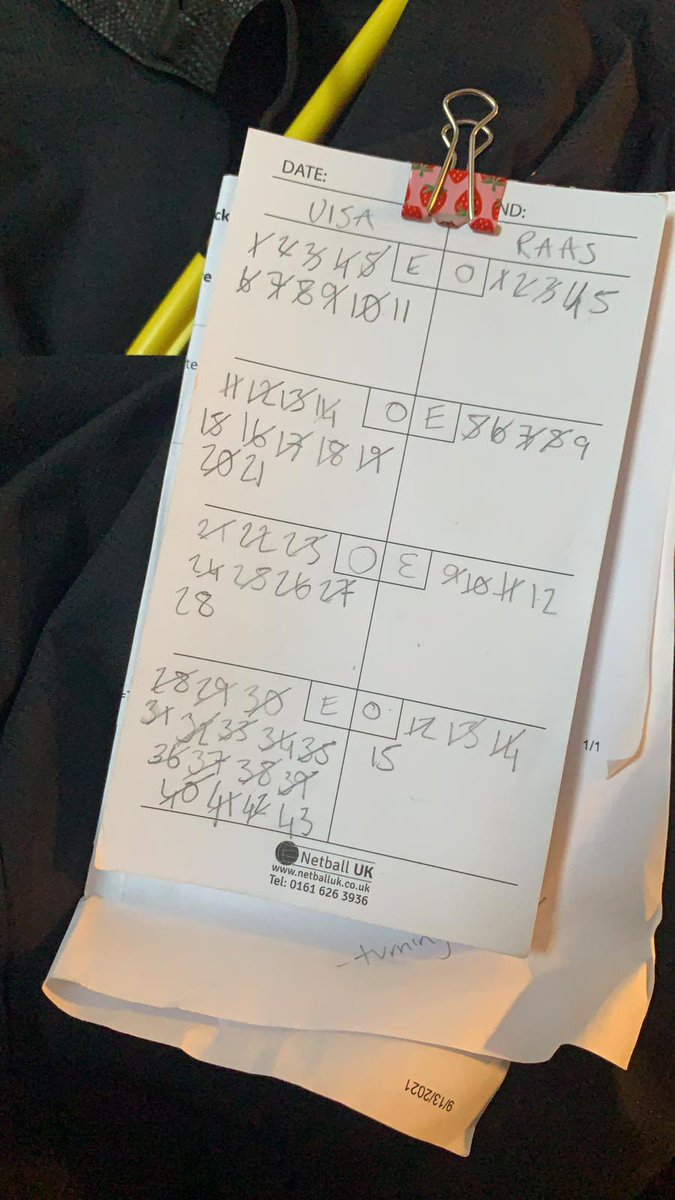 DATE:
ND:
ck
UISA
RAAS
1 2 3 4 5 E O 1 2 3 4 5
6 7 8 9 10 11
e
te
11 12 13 14 O E 5 6 7 8 9
15 16 17 18 19
20 21
21 22 23 O E 9 10 11 12
24 25 26 27
28
28 29 30 E O 12 13 14
31 32 33 34 35 15
36 37 38 39
40 41 42 43
1/1
Netball UK
www.netballuk.co.uk
Tel: 0161 626 3936
- turning
9/13/2021